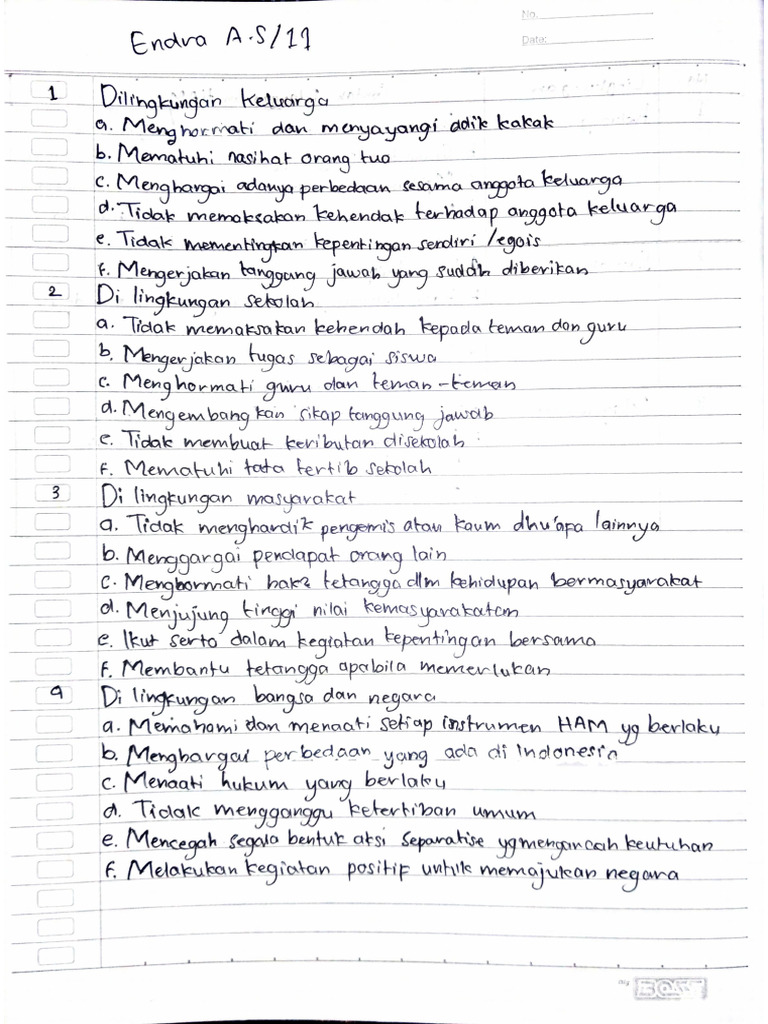 No.
Date:
Endra A.S/11
1 Dilingkungan keluarga
a. Menghormati dan menyayangi adik kakak
b. Mematuhi nasihat orang tua
c. Menghargai adanya perbedaan sesama anggota keluarga
d. Tidak memaksakan kehendak terhadap anggota keluarga
e. Tidak mementingkan kepentingan sendiri /egois
f. Mengerjakan tanggung jawab yang sudah diberikan
2 Di lingkungan sekolah
a. Tidak memaksakan kehendah kepada teman dan guru
b. Mengerjakan tugas sebagai siswa
c. Menghormati guru dan teman-teman
d. Mengembangkan sikap tanggung jawab
e. Tidak membuat keributan disekolah
f. Mematuhi tata tertib sekolah
3 Di lingkungan masyarakat
a. Tidak menghardik pengemis atau kaum dhu'apa lainnya
b. Menggargai pendapat orang lain
c. Menghormati hak2 tetangga dlm kehidupan bermasyarakat
d. Menjujung tinggi nilai kemasyarakatan
e. Ikut serta dalam kegiatan kepentingan bersama
f. Membantu tetangga apabila memerlukan
4 Di lingkungan bangsa dan negara
a. Memahami dan menaati setiap instrumen HAM yg berlaku
b. Menghargai perbedaan yang ada di Indonesia
c. Menaati hukum yang berlaku
d. Tidak mengganggu ketertiban umum
e. Mencegah segala bentuk aksi separatise yg mengancah keutuhan
f. Melakukan kegiatan positif untuk memajukan negara